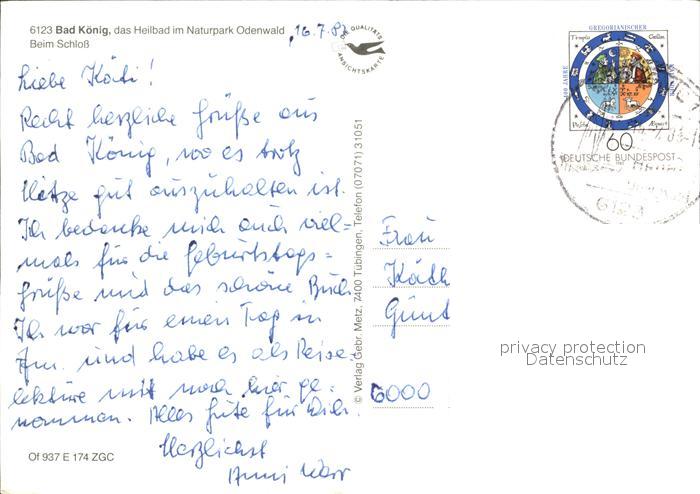 6123 Bad König, das Heilbad im Naturpark Odenwald
Beim Schloß
16.7.83
DIE QUALITÄTS
ANSICHTSKARTE
Liebe Käti!
Recht herzliche Grüße aus
Bad König, wo es trotz
Hitze gut auszuhalten ist.
Ich bedanke mich auch viel=
mals für die Geburtstags=
grüße und das schöne Buch.
Ich war für einen Tag in
und habe es als Reise-
lektüre mit nach hier ge-
nommen. Alles Gute für Dich.
Herzlichst
Anni
Of 937 E 174 ZGC
© Verlag Gebr. Metz, 7400 Tübingen, Telefon (07071) 31051
GREGORIANISCHER
400 JAHRE
60
DEUTSCHE BUNDESPOST
6123
Frau
Käth
Günt
6000
privacy protection
Datenschutz